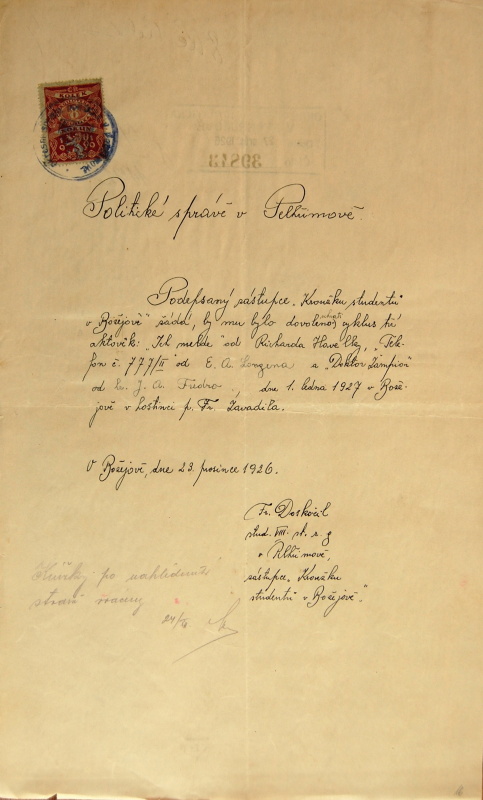 KOLEK
39843
Politické správě v Pelhřimově.
Podepsaný zástupce „Kroužku studentů
v Božejově" žádá, by mu bylo dovoleno sehráti cyklus tří
aktovek: „Ich melde" od Richarda Havelky, „Tele-
fon č. 777/II" od E. A. Longena a „Doktor Zampion"
od J. A. Fredro, dne 1. ledna 1927 v Bože-
jově v hostinci p. Fr. Zavadila.
V Božejově, dne 23. prosince 1926.
Fr. Doskočil
stud. VIII. st. r. g
v Pelhřimově,
zástupce „Kroužku
studentů v Božejově."
Knížky po nahlédnutí
straně vráceny
24/12